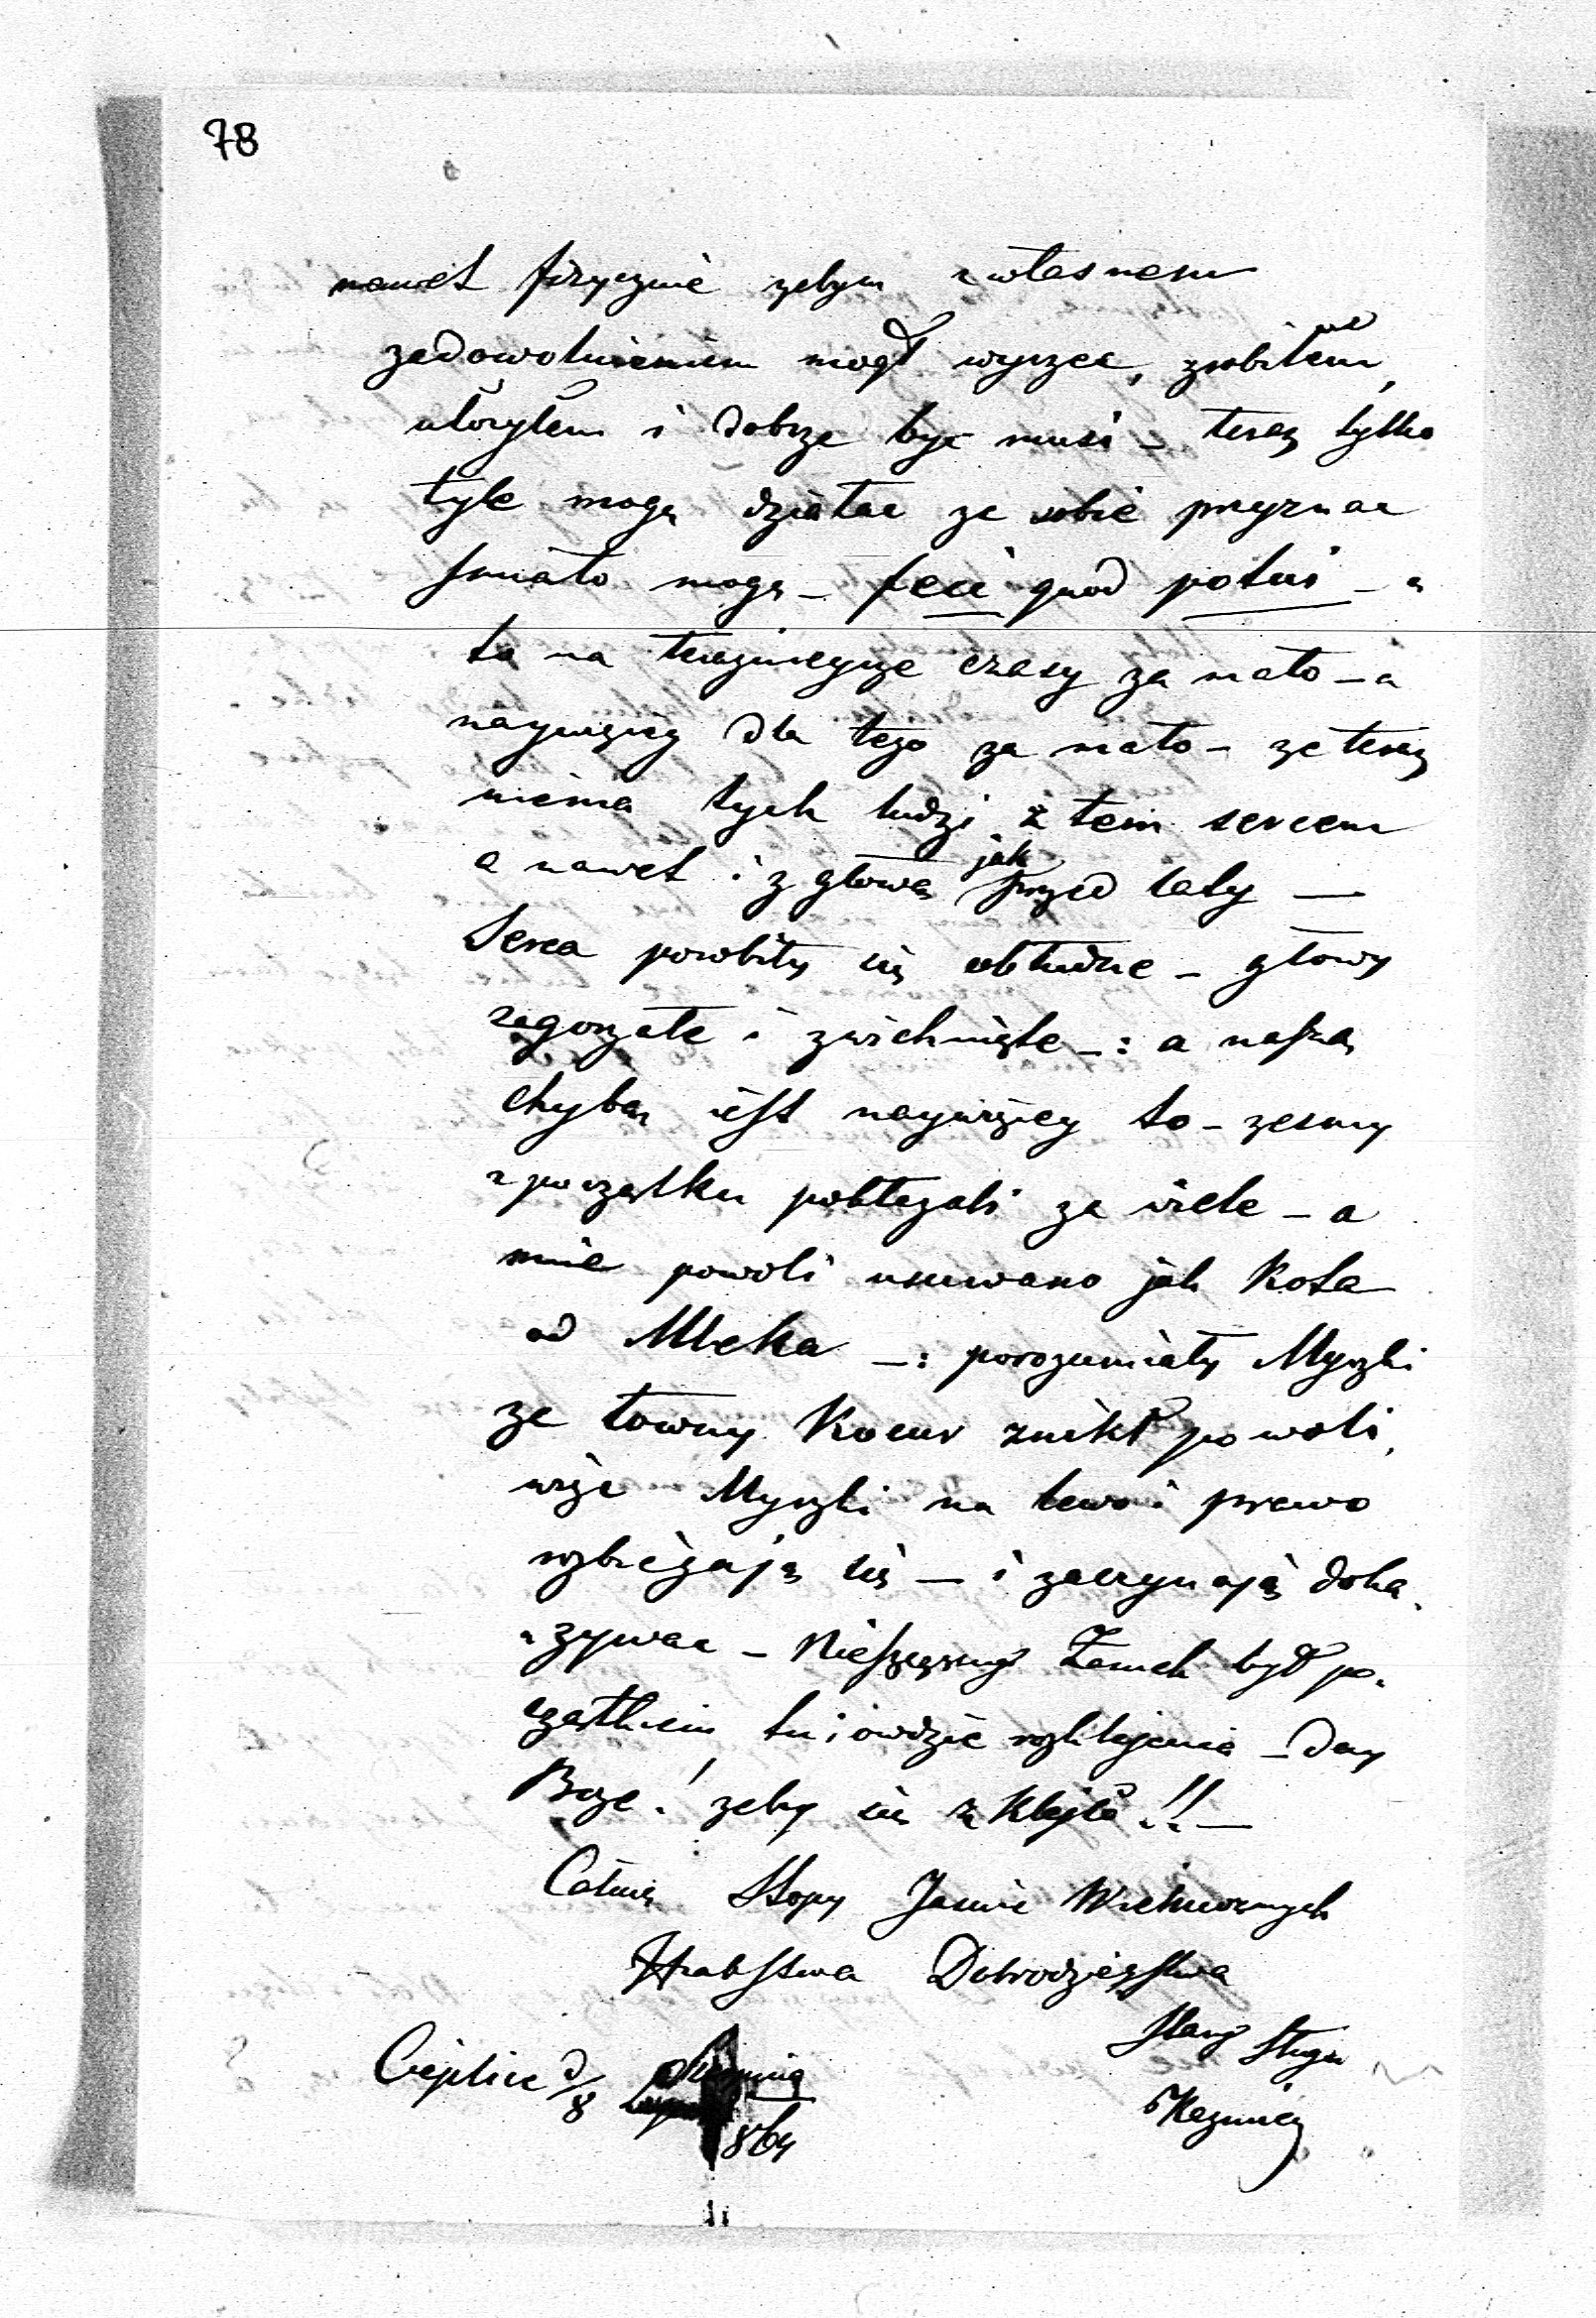 78
nawet fizycznie zebym z własnem
zadowolnieniem mogł wyrzec, zrobiłem,
ułożyłem i dobrze być musi – teraz tylko
tyle mogę działac ze sobie przyznac
smiało mogę – feci quod potui – a
to na teraznieysze czasy za mało – a
naywięcy dla tego za mało – ze teraz
niema tych ludzi z tem sercem
a nawet i z głową jak przed laty —
Serca porobiły się obłudne – głowy
zagorzałe i zwichnięte –: a naszą
chybą iest naywięcey to – zesmy
z początku poblezali za wiele – a
mnie powoli usuwano jak Kota
od Mleka –: porozumiały Myszki
ze łowny Kocur znikł powoli,
więc Myszki na lewo i prawo
rozbiegają się — i zaczynają doka-
zywac – Nieszczęsny Zamek był po-
czątkiem tu i owdzie rozklejenia – Day
Boze! zeby się zkleiło!! —
Całuię Stopy Jasnie Wielmoznych
Hrabstwa Dobrodzieystwa
Stary Sługa
Kazmierz
Cieplice d/8 864